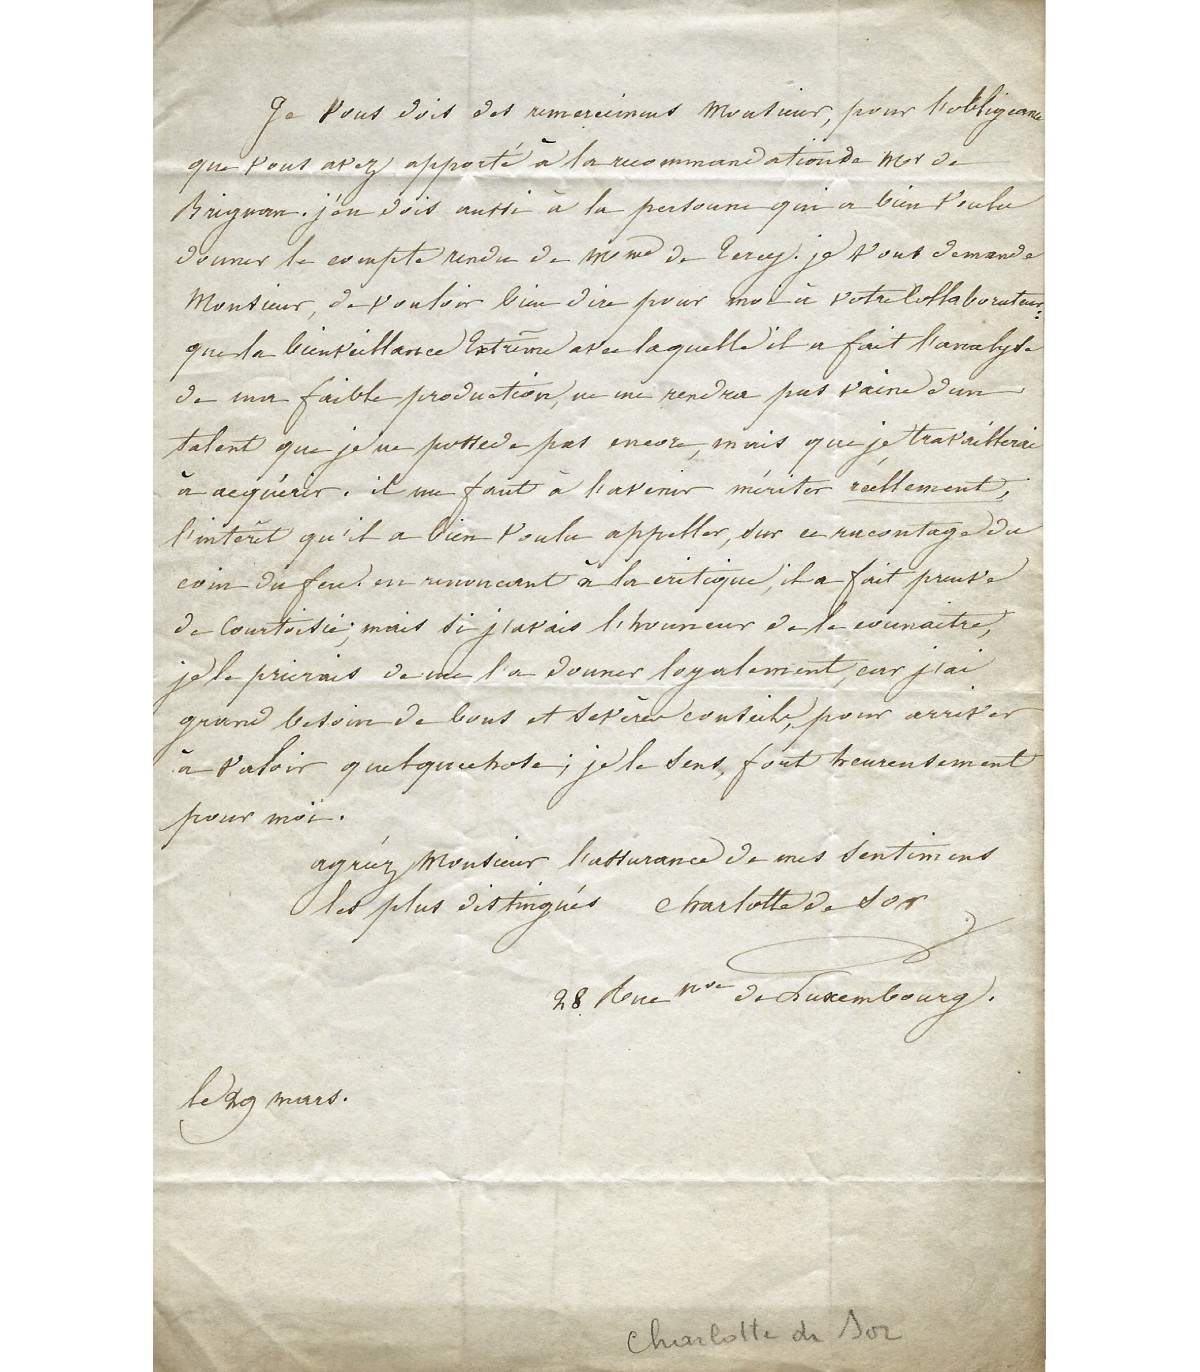 Je vous dois des remerciemens Monsieur, pour l'obligeance
que vous avez apporté à la recommandation de Mor de
Brignan. j'en dois aussi à la personne qui a bien voulu
donner le compte rendu de Mme de Tercy. je vous demande
Monsieur, de vouloir bien dire pour moi à votre Collaborateur
que la bienveillance Extrême avec laquelle il a fait l'analyse
de ma faible production, ne me rendra pas vaine d'un
talent que je ne possede pas encore, mais que je travaillerai
à acquérir. il me faut à l'avenir mériter réellement,
l'intérêt qu'il a bien voulu appeller, sur ce racontage du
coin du feu. en renoncant à la critique, il a fait preuve
de Courtoisie; mais si j'avais l'honneur de le connaitre,
je le prierais de me l'a donner loyalement, car j'ai
grand besoin de bons et sévères conseils, pour arriver
à valoir quelquechose; je le sens, fort heureusement
pour moi.
agréez Monsieur l'assurance de mes sentimens
les plus distingués Charlotte de Sor
28 Rue nve de Luxembourg.
le 29 mars.
Charlotte de Sor